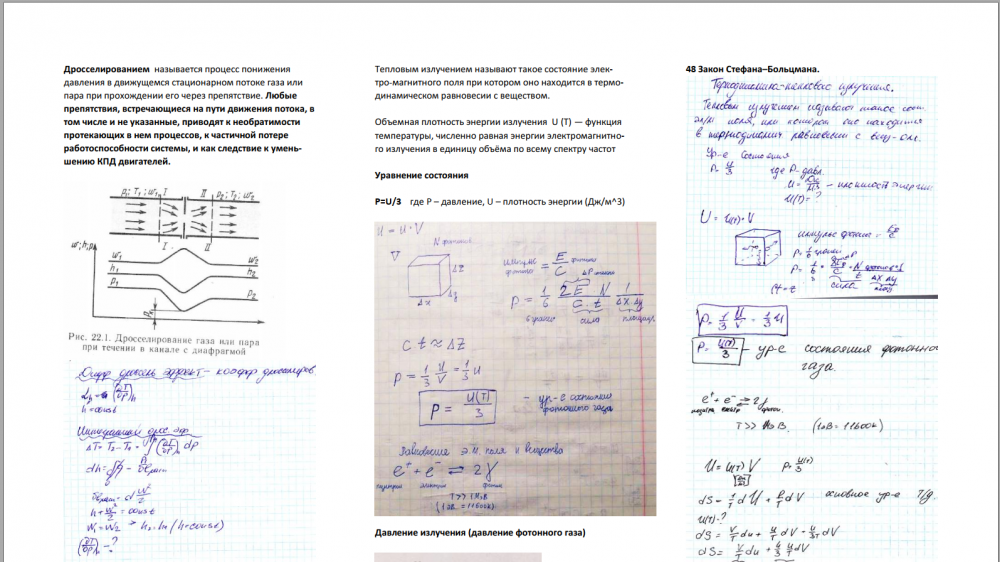 Дросселированием называется процесс понижения
давления в движущемся стационарном потоке газа или
пара при прохождении его через препятствие. Любые
препятствия, встречающиеся на пути движения потока, в
том числе и не указанные, приводят к необратимости
протекающих в нем процессов, к частичной потере
работоспособности системы, и как следствие к умень-
шению КПД двигателей.
p₁; T₁; w₁ I II p₂; T₂; w₂
I II
w; h; p
w₁ w₂
h₁ h₂
p₁ p₂
Рис. 22.1. Дросселирование газа или пара
при течении в канале с диафрагмой
Дифф дроссель эффект – коэфф дросселиров
h = const
Интегральн дрос. эф
ΔT = T₂ - T₁ = ∫ (∂T/∂p)ₕ dp
h + w²/2 = const
w₁ = w₂ → h₂ = h₁ (h = const)
(∂T/∂p)ₕ - ?
Тепловым излучением называют такое состояние элек-
тро-магнитного поля при котором оно находится в термо-
динамическом равновесии с веществом.
Объемная плотность энергии излучения U (T) — функция
температуры, численно равная энергии электромагнитно-
го излучения в единицу объёма по всему спектру частот
Уравнение состояния
P=U/3 где P – давление, U – плотность энергии (Дж/м^3)
U = u · V
N фотонов
V
ΔZ
Δy
Δx
импульс фотона = E фотона / C
ΔP фотона
P = 1/6 2E/C N/t 1/Δx Δy
сила площадь
C t ≈ ΔZ
P = 1/3 U/V = 1/3 u
P = U(T)/3 - ур-е состояния
фотонного газа
Э.М. поля и вещества
e⁺ + e⁻ ⇄ 2γ
позитрон электрон фотон
T >> 1 МэВ
(1 эВ = 11600К)
Давление излучения (давление фотонного газа)
48 Закон Стефана–Больцмана.
Термодинамика тепловое излучения.
Тепловым излучением называют такое сост.
эл/м поля, при котором оно находится
в термодинамич равновесии с вещ-ом.
Ур-е состояния
P = U/3 где P - давл.
U = Дж/м³ - плотность энергии
U(T) = ?
U = U(T) · V
импульс фотона = Eф/C
сила
P = 1/3 U/V = 1/3 u
P = U(T)/3 - ур-е состояния фотонного
газа.
e⁺ + e⁻ ⇄ 2γ
T >> МэВ. (1эВ = 11600К)
U = U(T) V P = U(T)/3
dS = 1/T dU + P/T dV основное ур-е т/д.
U(T) - ?
dS = V/T du + u/T dV + u/3T dV
dS = V/T du + 4/3 u/T dV